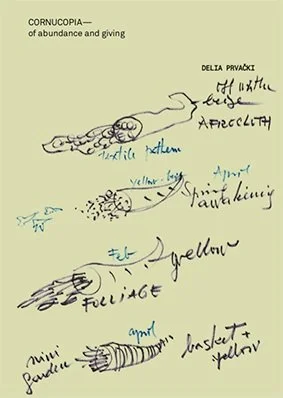 CORNUCOPIA—
of abundance and giving
DELIA PRVAČKI
beige
AFROCLOTH
textile pattern
yellow-beige
April
Spirit
awakening
Feb
yellow
FOLLIAGE
april
mini
garden
basket +
yellow